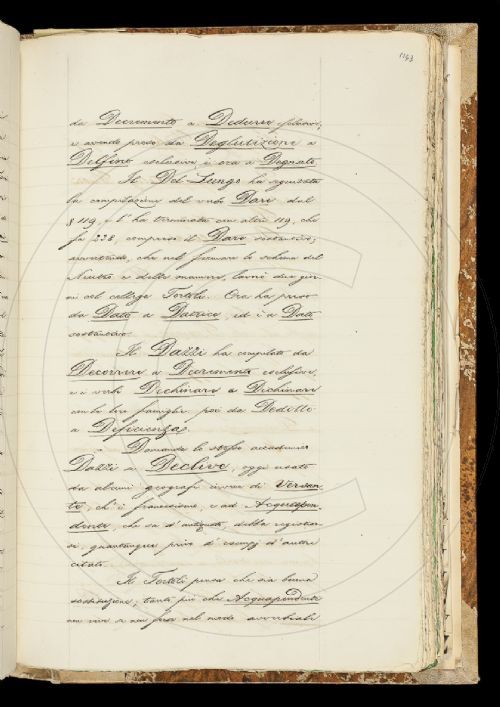 1143
da Decremento a Dedurre esclusivi;
e avendo preso da Deglutizione a
Delfino esclusive è ora a Degnato.
Il Del-Lungo ha seguitato
la compilazione del verbo Dare dal
§ 119, e l'ha terminata con altri 119, che
fa 238, compreso il Dare sostantivo;
avvertendo, che nel fermare lo schema del
Neutro e delle maniere, lavorò due gior
ni col collega Tortoli. Ora ha preso
da Dato a Datrice, ed è a Dato
sostantivo.
Il Dazzi ha compilato da
Decorrere a Decremento esclusive,
e i verbi Dechinare e Dichinare
con le loro famiglie: poi da Dedotto
a Deficienza.
Domanda lo stesso accademico
Dazzi se Declive, oggi usato
da alcuni geografi invece di Versan
te, ch'è francesismo, e ad Acquapen
dente, che sa d'antiquato, debba registrar
si, quantunque privo d'esempj d'autori
citati.
Il Tortoli pensa che sia buona
sostituzione; tanto più che Acquapendente
non vive se non forse nel modo avverbiale